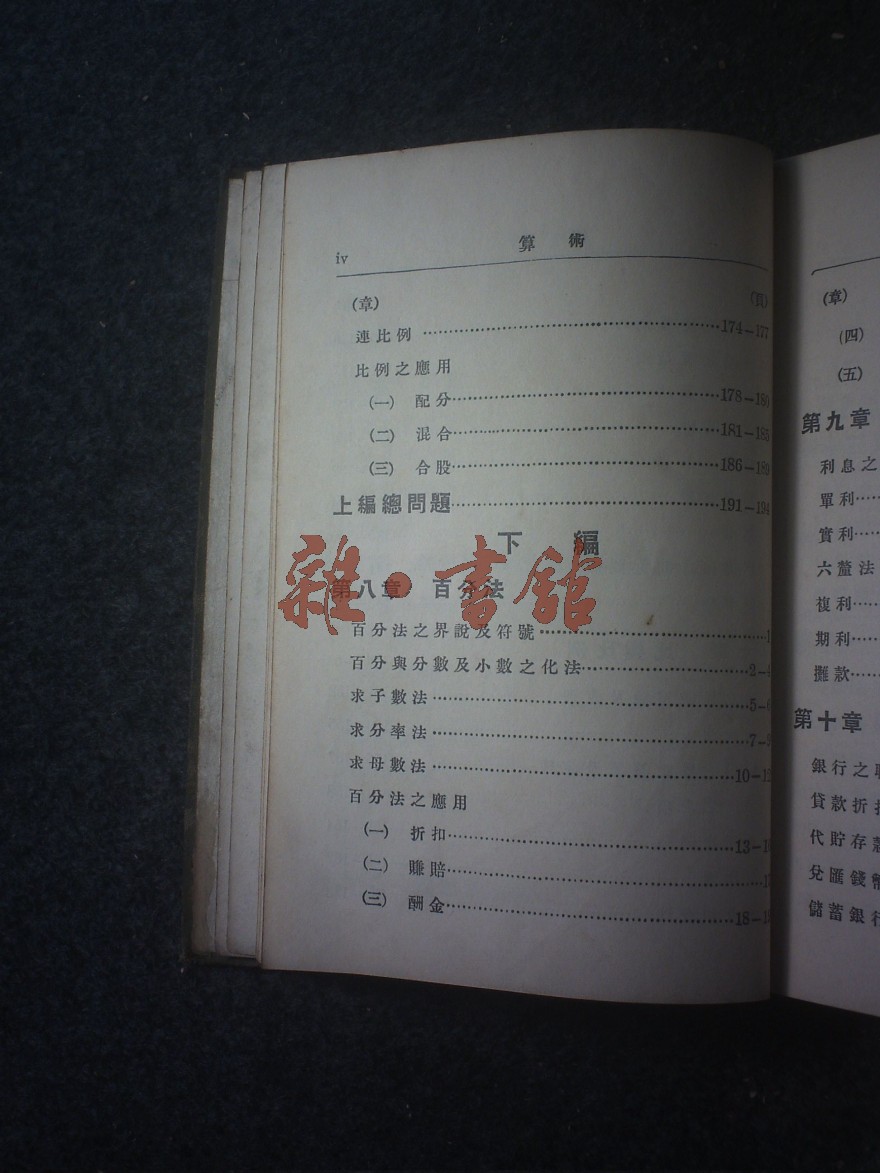 iv
算 術
(章) (頁)
連比例 174–177
比例之應用
(一) 配分 178–180
(二) 混合 181–185
(三) 合股 186–189
上編總問題 191–194
下 編
第八章 百分法
百分法之界說及符號 1
百分與分數及小數之化法 2–4
求子數法 5–6
求分率法 7–
求母數法 10–
百分法之應用
(一) 折扣 13–
(二) 賺賠
(三) 酬金 18–
雜·書館
(章)
(四)
(五)
第九章
利息之
單利
實利
六釐法
複利
期利
攤款
第十章
銀行之
貸款折
代貯存
兌匯錢
儲蓄銀行